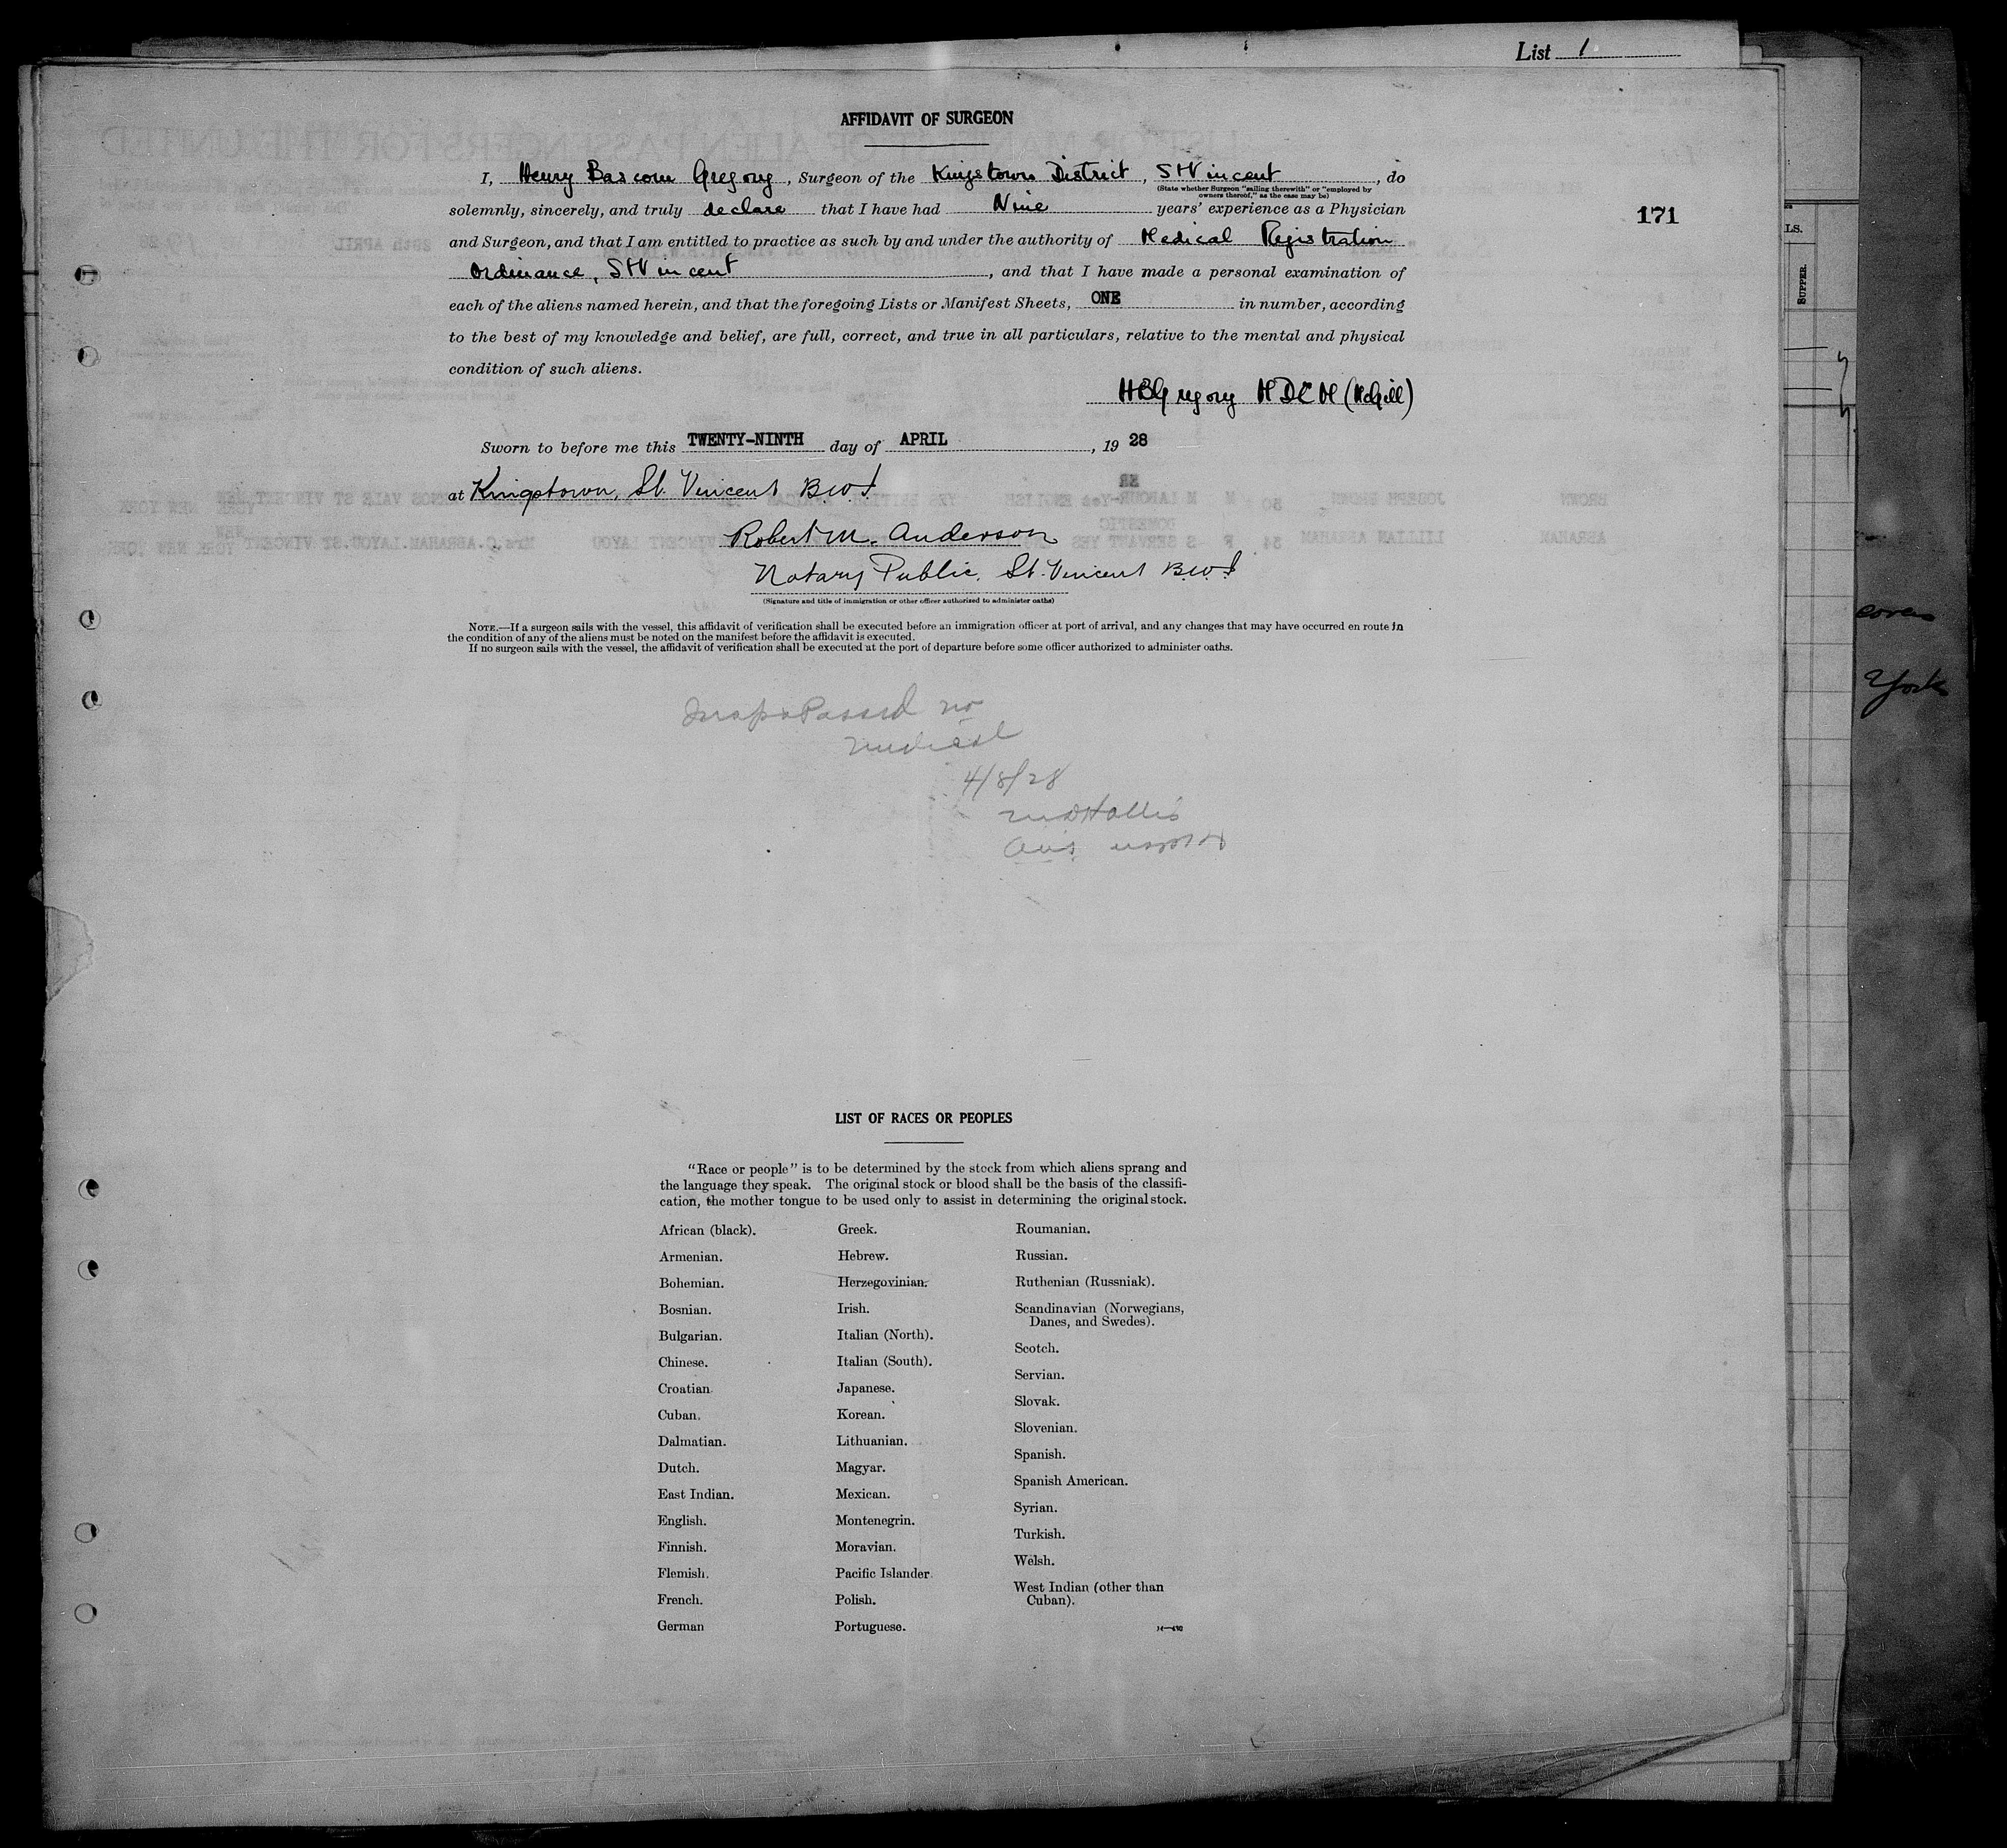 List 1
AFFIDAVIT OF SURGEON
I, Henry Bascom Gregory, Surgeon of the Kingstown District, St Vincent, do
(State whether Surgeon "sailing therewith" or "employed by
owners thereof," as the case may be)
solemnly, sincerely, and truly declare that I have had Nine years' experience as a Physician
171
and Surgeon, and that I am entitled to practice as such by and under the authority of Medical Registration
Ordinance, St Vincent, and that I have made a personal examination of
each of the aliens named herein, and that the foregoing Lists or Manifest Sheets, ONE in number, according
to the best of my knowledge and belief, are full, correct, and true in all particulars, relative to the mental and physical
condition of such aliens.
HBGregory MDCM (McGill)
Sworn to before me this TWENTY-NINTH day of APRIL, 19 28
at Kingstown, St. Vincent B.W.I
Robert M. Anderson
Notary Public, St. Vincent B.W.I
(Signature and title of immigration or other officer authorized to administer oaths)
NOTE.—If a surgeon sails with the vessel, this affidavit of verification shall be executed before an immigration officer at port of arrival, and any changes that may have occurred en route in
the condition of any of the aliens must be noted on the manifest before the affidavit is executed.
If no surgeon sails with the vessel, the affidavit of verification shall be executed at the port of departure before some officer authorized to administer oaths.
Passed no
medical
4/8/28
LS.
SUPPER.
York
LIST OF RACES OR PEOPLES
"Race or people" is to be determined by the stock from which aliens sprang and
the language they speak. The original stock or blood shall be the basis of the classifi-
cation, the mother tongue to be used only to assist in determining the original stock.
African (black).
Armenian.
Bohemian.
Bosnian.
Bulgarian.
Chinese.
Croatian.
Cuban.
Dalmatian.
Dutch.
East Indian.
English.
Finnish.
Flemish.
French.
German
Greek.
Hebrew.
Herzegovinian.
Irish.
Italian (North).
Italian (South).
Japanese.
Korean.
Lithuanian.
Magyar.
Mexican.
Montenegrin.
Moravian.
Pacific Islander.
Polish.
Portuguese.
Roumanian.
Russian.
Ruthenian (Russniak).
Scandinavian (Norwegians,
Danes, and Swedes).
Scotch.
Servian.
Slovak.
Slovenian.
Spanish.
Spanish American.
Syrian.
Turkish.
Welsh.
West Indian (other than
Cuban).